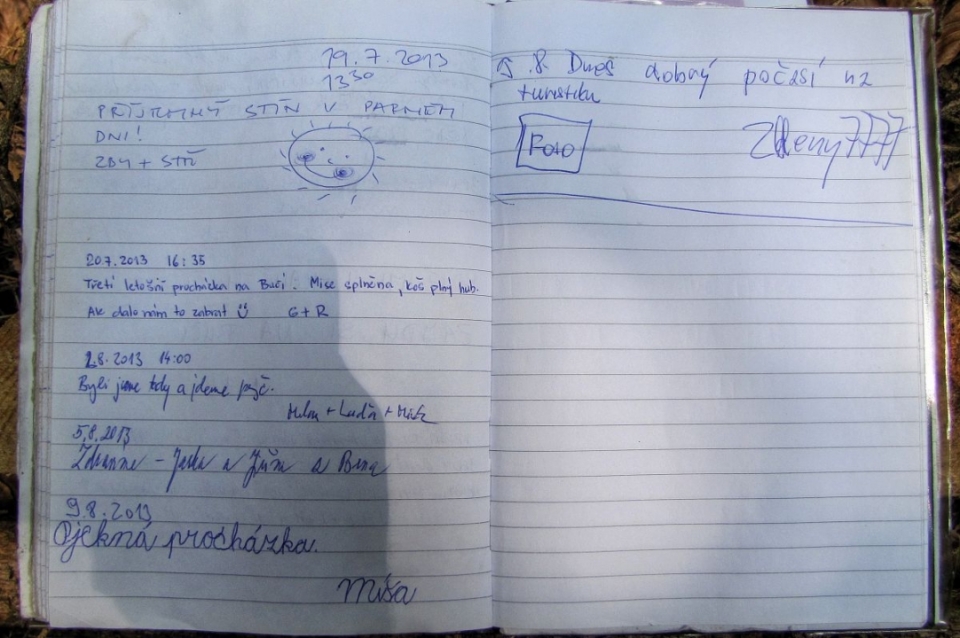 19.7.2013
13 30
PŘÍJEMNÝ STÍN V PARNÉM
DNI!
ZBY + STŘ
20.7.2013 16:35
Třetí letošní procházka na Bučí. Mise splněna, koš plný hub.
Ale dalo nám to zabrat G+R
2.8.2013 14:00
Byli jsme tdy a jdeme pryč.
+ Luďa +
5.8.2013
Zdravíme - a a
9.8.2013
Pjekná procházka.
Míša
.8. Dnes dobrý počasí na
turistiku
Foto
Zdeny777